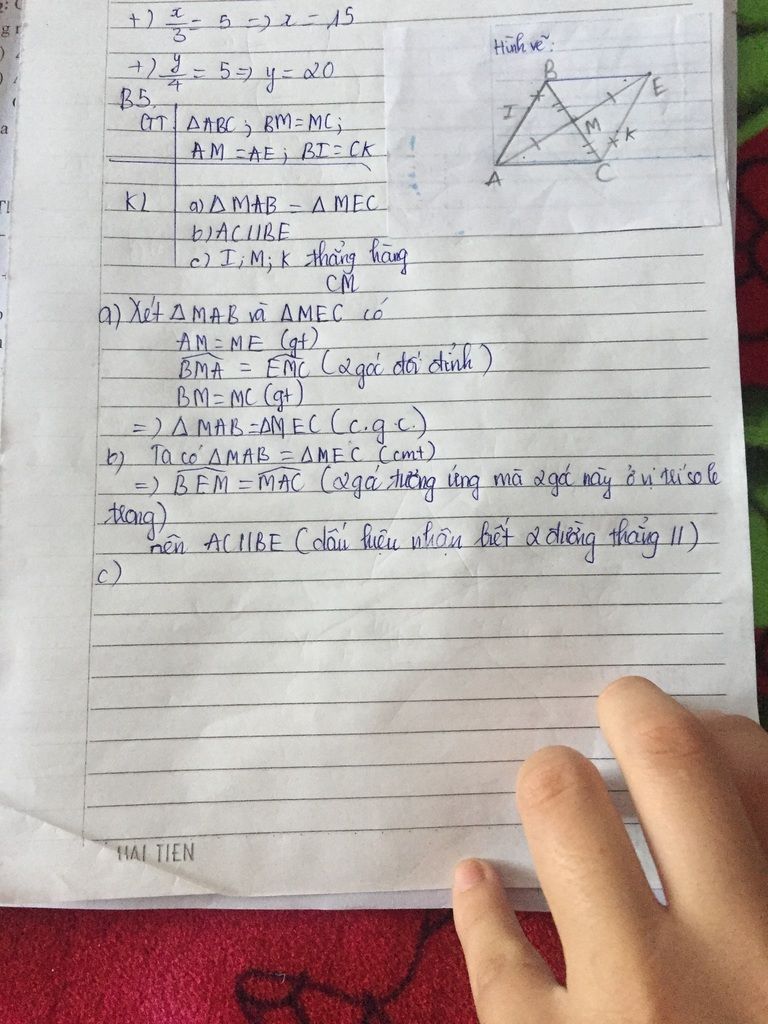 +) x/3 = 5 => x = 15
+) y/4 = 5 => y = 20
B5.
GT | ΔABC ; BM = MC;
AM = AE ; BI = CK
KL | a) Δ MAB = Δ MEC
b) AC // BE
c) I ; M ; K thẳng hàng
Hình vẽ:
B
E
I
M
K
A
C
CM
a) Xét Δ MAB và Δ MEC có
AM = ME (gt)
BMA = EMC (2 góc đối đỉnh)
BM = MC (gt)
=> Δ MAB = Δ MEC (c.g.c.)
b) Ta có Δ MAB = Δ MEC (cmt)
=> BEM = MAC (2 góc tương ứng mà 2 góc này ở vị trí so le
trong)
nên AC // BE (dấu hiệu nhận biết 2 đường thẳng //)
c)
HAI TIEN